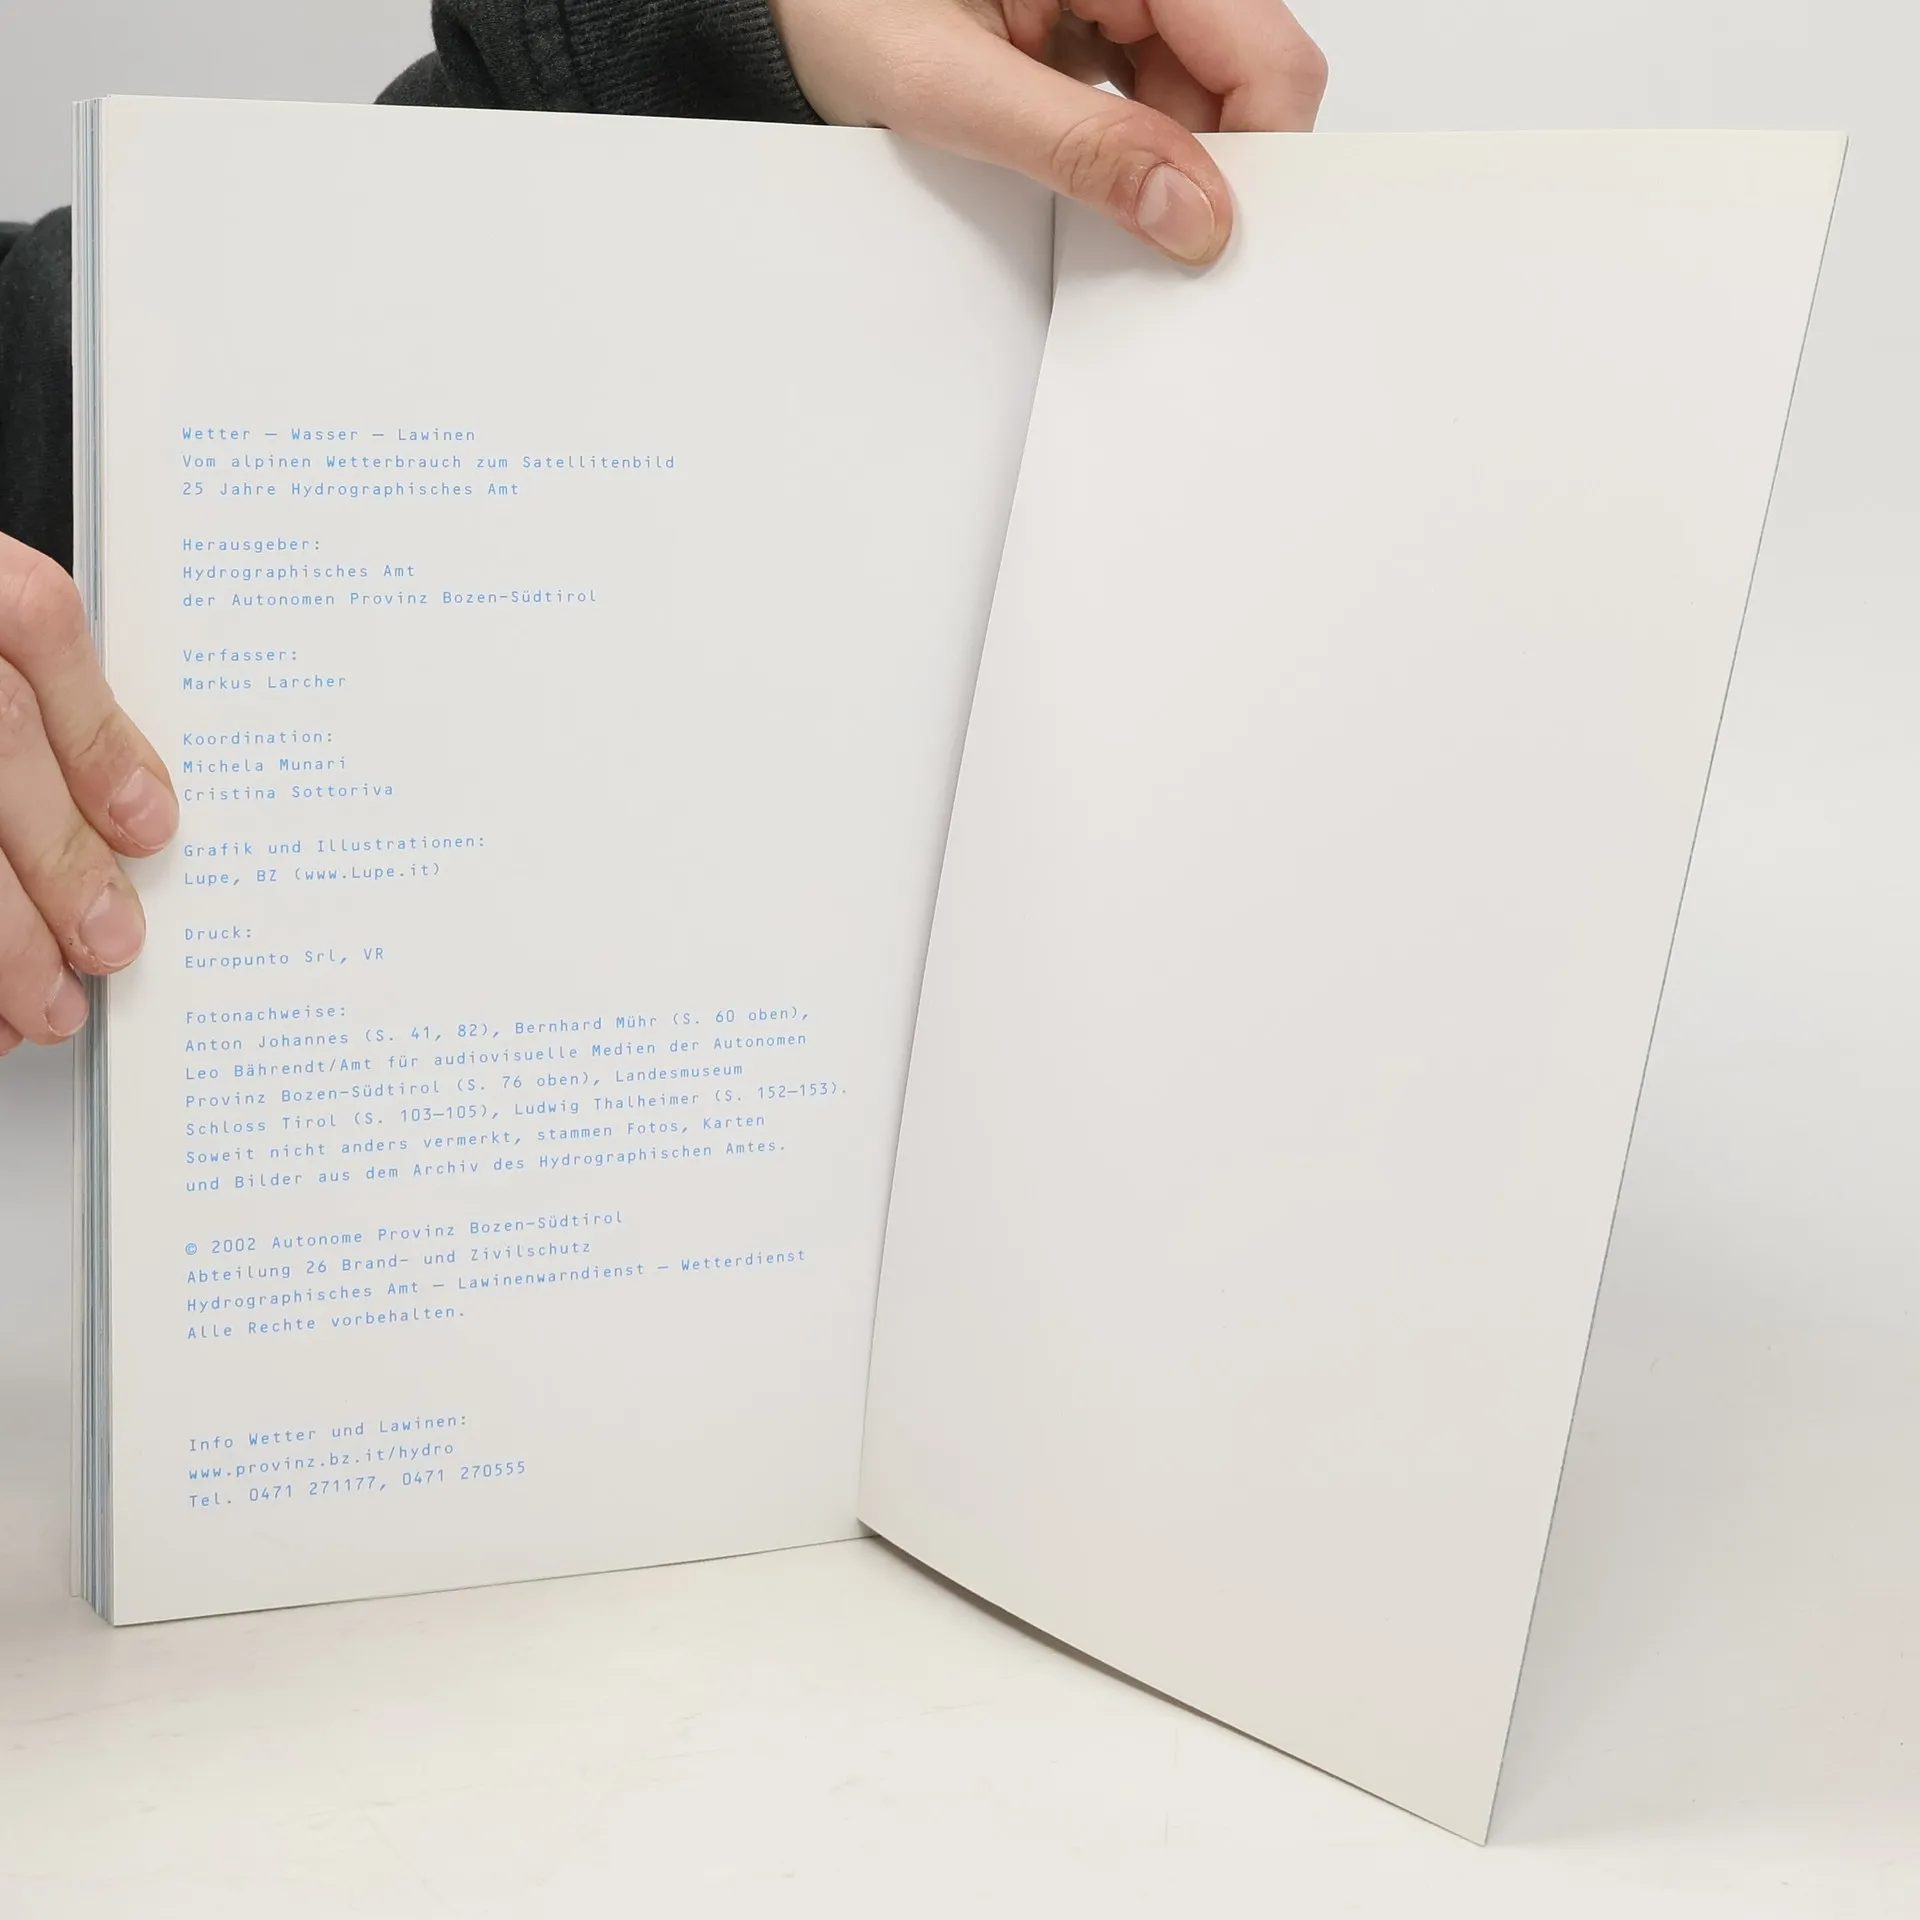 Wetter — Wasser — Lawinen
Vom alpinen Wetterbrauch zum Satellitenbild
25 Jahre Hydrographisches Amt
Herausgeber:
Hydrographisches Amt
der Autonomen Provinz Bozen-Südtirol
Verfasser:
Markus Larcher
Koordination:
Michela Munari
Cristina Sottoriva
Grafik und Illustrationen:
Lupe, BZ (www.Lupe.it)
Druck:
Europunto Srl, VR
Fotonachweise:
Anton Johannes (S. 41, 82), Bernhard Mühr (S. 60 oben),
Leo Bährendt/Amt für audiovisuelle Medien der Autonomen
Provinz Bozen-Südtirol (S. 76 oben), Landesmuseum
Schloss Tirol (S. 103—105), Ludwig Thalheimer (S. 152—153).
Soweit nicht anders vermerkt, stammen Fotos, Karten
und Bilder aus dem Archiv des Hydrographischen Amtes.
© 2002 Autonome Provinz Bozen-Südtirol
Abteilung 26 Brand- und Zivilschutz
Hydrographisches Amt — Lawinenwarndienst — Wetterdienst
Alle Rechte vorbehalten.
Info Wetter und Lawinen:
www.provinz.bz.it/hydro
Tel. 0471 271177, 0471 270555